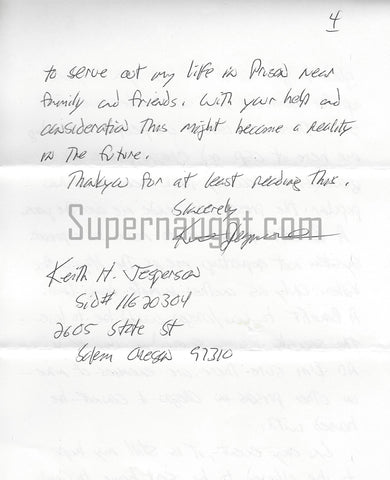 4
to serve out my life in Prison near
family and friends. With your help and
consideration This might become a reality
in The future.
Thankyou for at least reading This.
Sincerely
Supernaught.com
Keith H. Jesperson
Sid# 11620304
2605 State St
Salem Oregon 97310